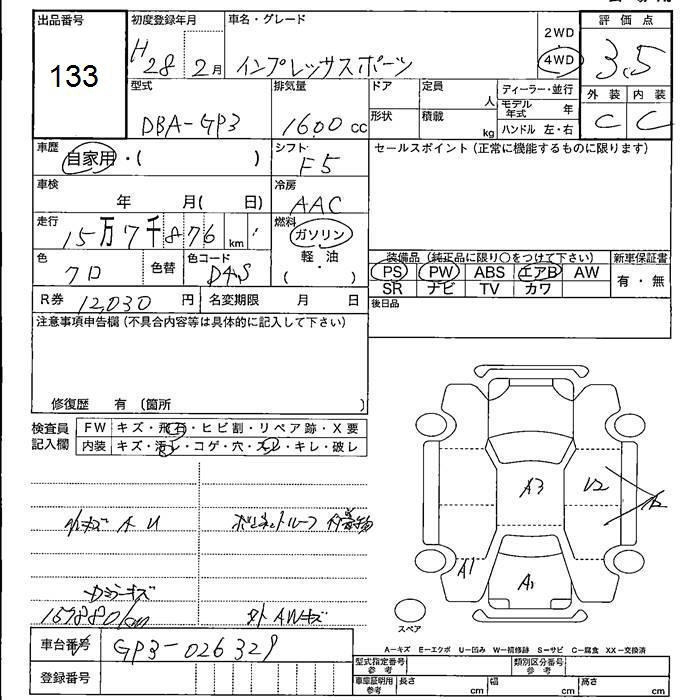 出品番号
133
初度登録年月
H28 2月
車名・グレード
インプレッサスポーツ
2WD
4WD
評価点
3.5
外装 内装
C C
型式
DBA-GP3
排気量
1600 cc
ドア
定員
人
形状
積載
kg
ディーラー・並行
モデル年式 年
ハンドル 左・右
車歴
自家用・( )
シフト
F5
セールスポイント(正常に機能するものに限ります)
車検
年 月( 日)
冷房
AAC
走行
15万7千876 km
燃料
ガソリン
軽・油
( )
色
クロ
色替
色コード
D4S
装備品(純正品に限り○をつけて下さい)
新車保証書
PS PW ABS エアB AW
有・無
SR ナビ TV カワ
R券 12,030 円
名変期限 月 日
後日品
注意事項申告欄(不具合内容等は具体的に記入して下さい)
修復歴 有 (箇所 )
検査員記入欄
FW キズ・飛石・ヒビ割・リペア跡・X要
内装 キズ・汚レ・コゲ・穴・スレ・キレ・破レ
A3
U2
A1
A1
A U
157880km
外AWキズ
スペア
車台番号
GP3-026329
登録番号
A-キズ E-エクボ U-凹み W-補修跡 S-サビ C-腐食 XX-交換済
型式指定番号 参考
類別区分番号 参考
車庫証明用 参考
長さ cm
幅 cm
高さ cm